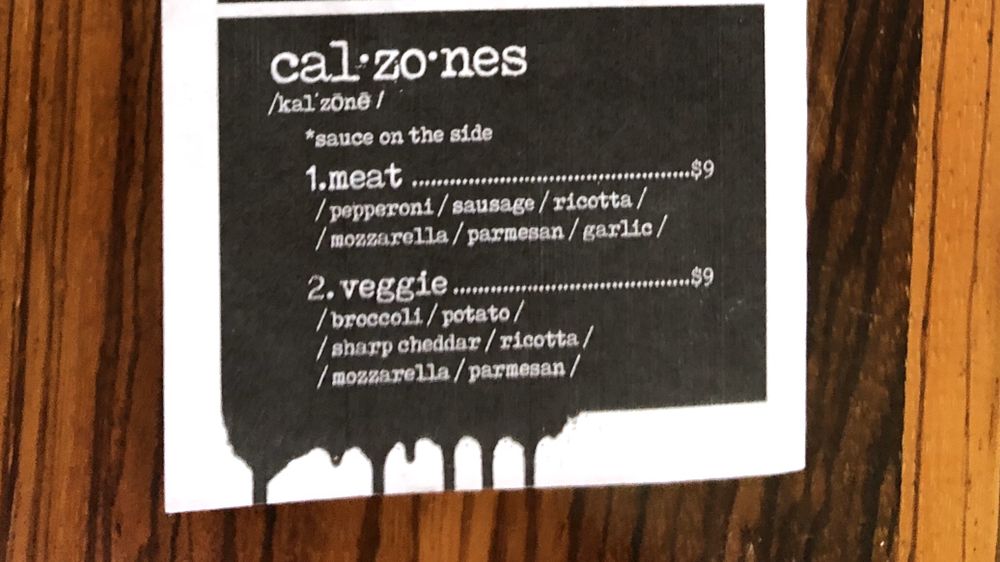 cal·zo·nes
/kal'zōnē/
*sauce on the side
1.meat ..............................................$9
/pepperoni/sausage/ricotta/
/mozzarella/parmesan/garlic/
2.veggie.......................................$9
/broccoli/potato/
/sharp cheddar/ricotta/
/mozzarella/parmesan/